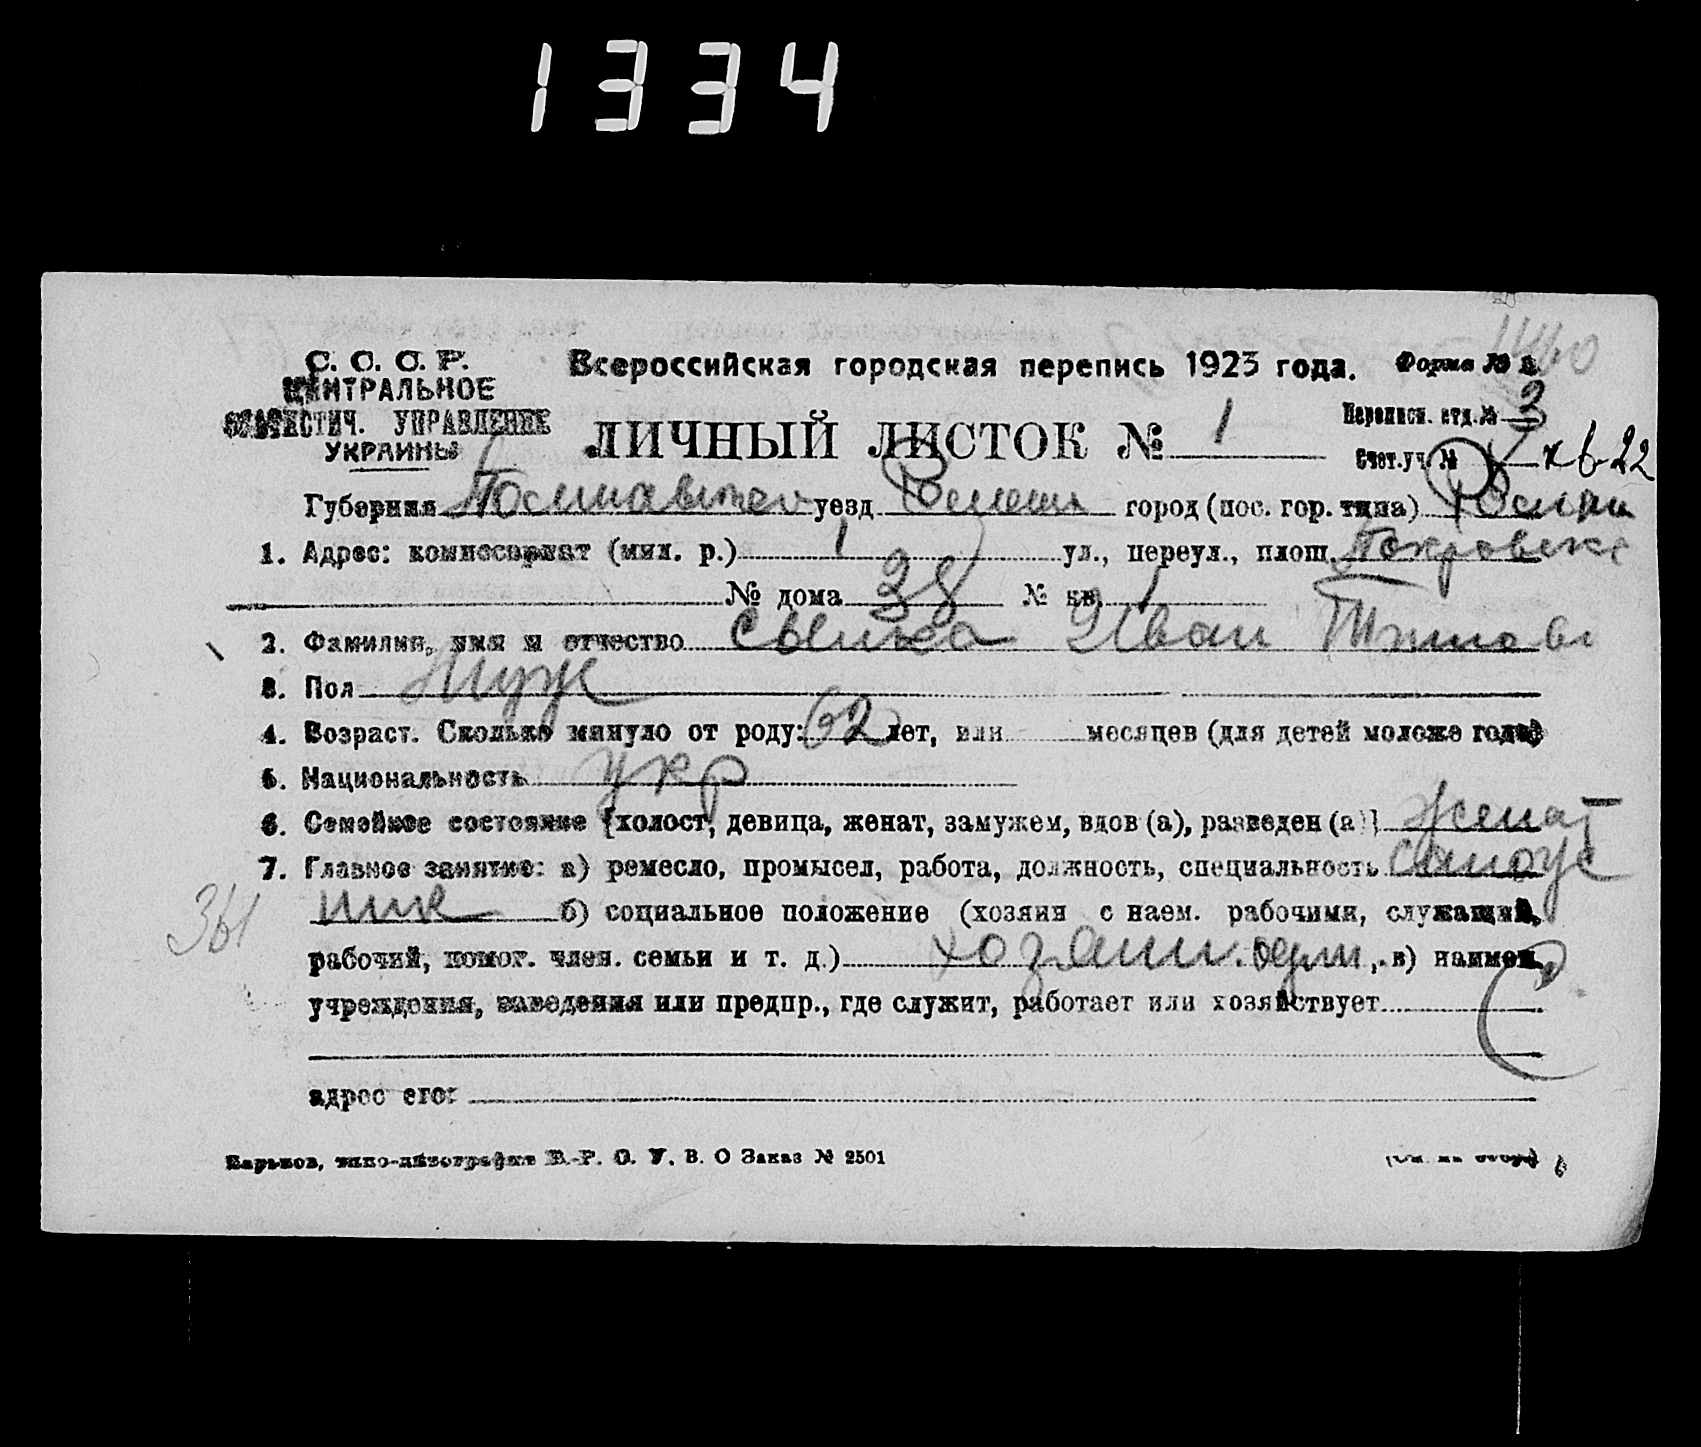 1334
С. С. С. Р.
ЦЕНТРАЛЬНОЕ
СТАТИСТИЧ. УПРАВЛЕНИЕ
УКРАИНЫ
Всероссийская городская перепись 1923 года. Форма № а.
ЛИЧНЫЙ ЛИСТОК № 1
Переписн. отд. № 3
Счет. уч. №
Губерния уезд город (пос. гор. типа)
1. Адрес: комиссариат (мил. р.) 1 ул., переул., площ. Покровск
№ дома 38 № кв. 1
2. Фамилия, имя и отчество Иван
3. Пол Муж
4. Возраст. Сколько минуло от роду: 62 лет, или месяцев (для детей моложе года)
5. Национальность укр
6. Семейное состояние [холост, девица, женат, замужем, вдов (а), разведен (а)] женат
7. Главное занятие: а) ремесло, промысел, работа, должность, специальность
б) социальное положение (хозяин с наем. рабочими, служащий,
рабочий, помог. член. семьи и т. д.) хозяин. один, в) наимен.
учреждения, заведения или предпр., где служит, работает или хозяйствует
адрес его:
361
Харьков, типо-литография В.-Р. О. У. В. О Заказ № 2501
(См. на обор.)